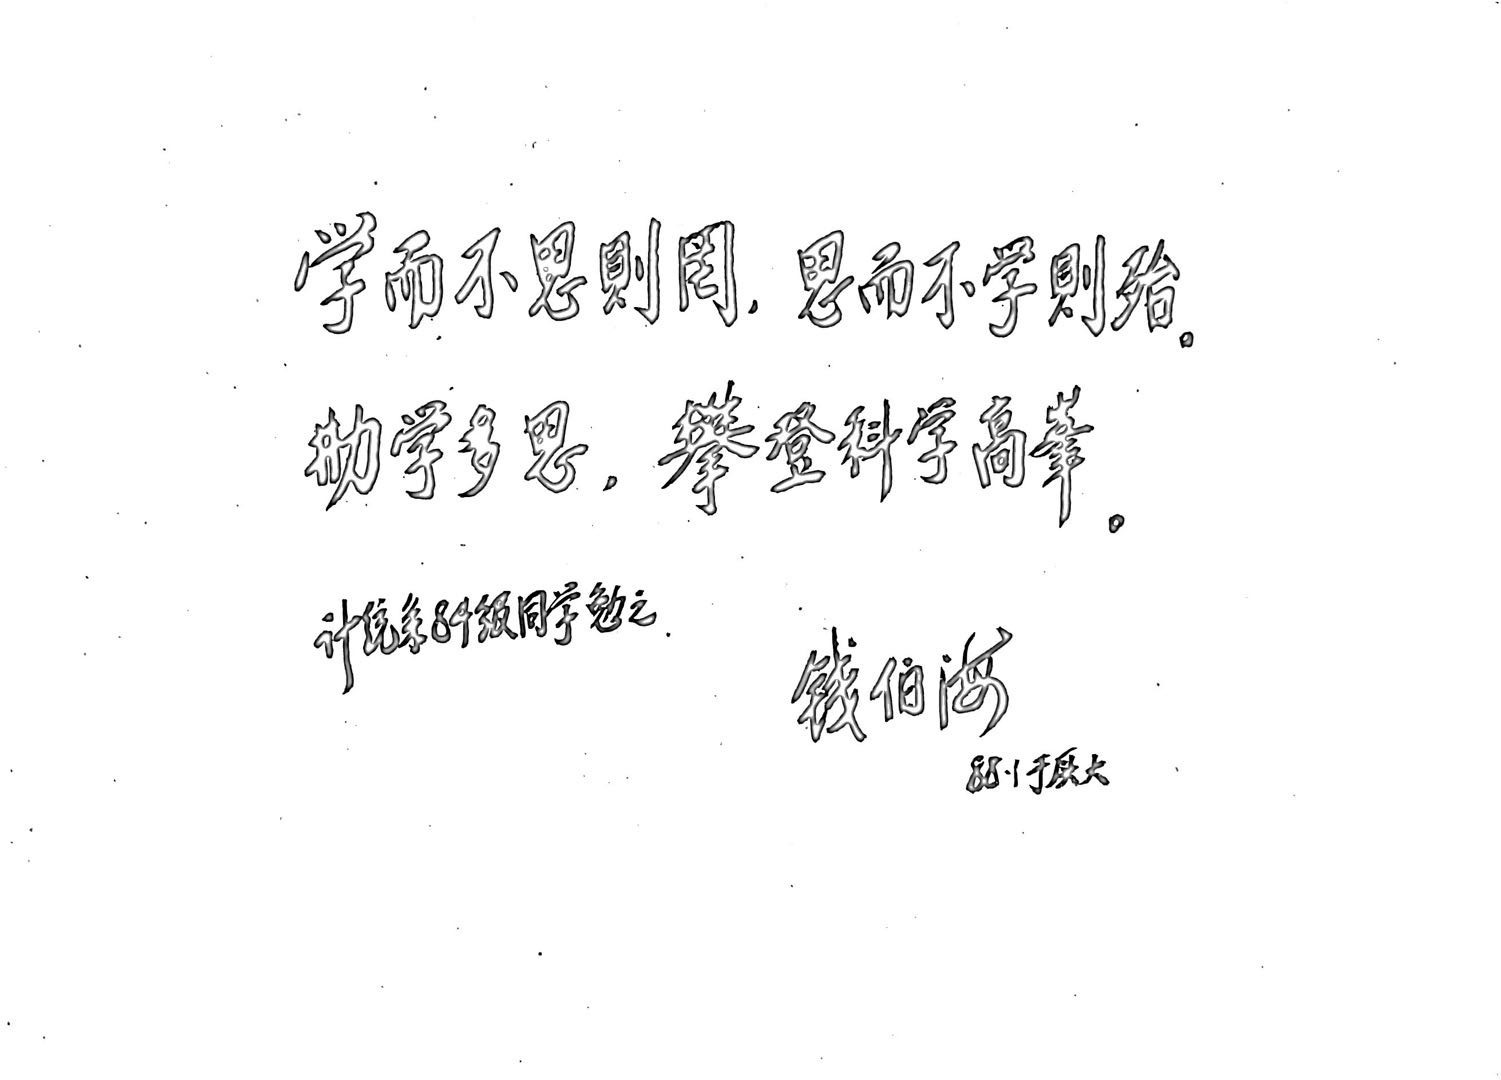 学而不思則罔，思而不学則殆。
勤学多思，攀登科学高峯。
计统系84级同学勉之.
钱伯海
88.1于厦大